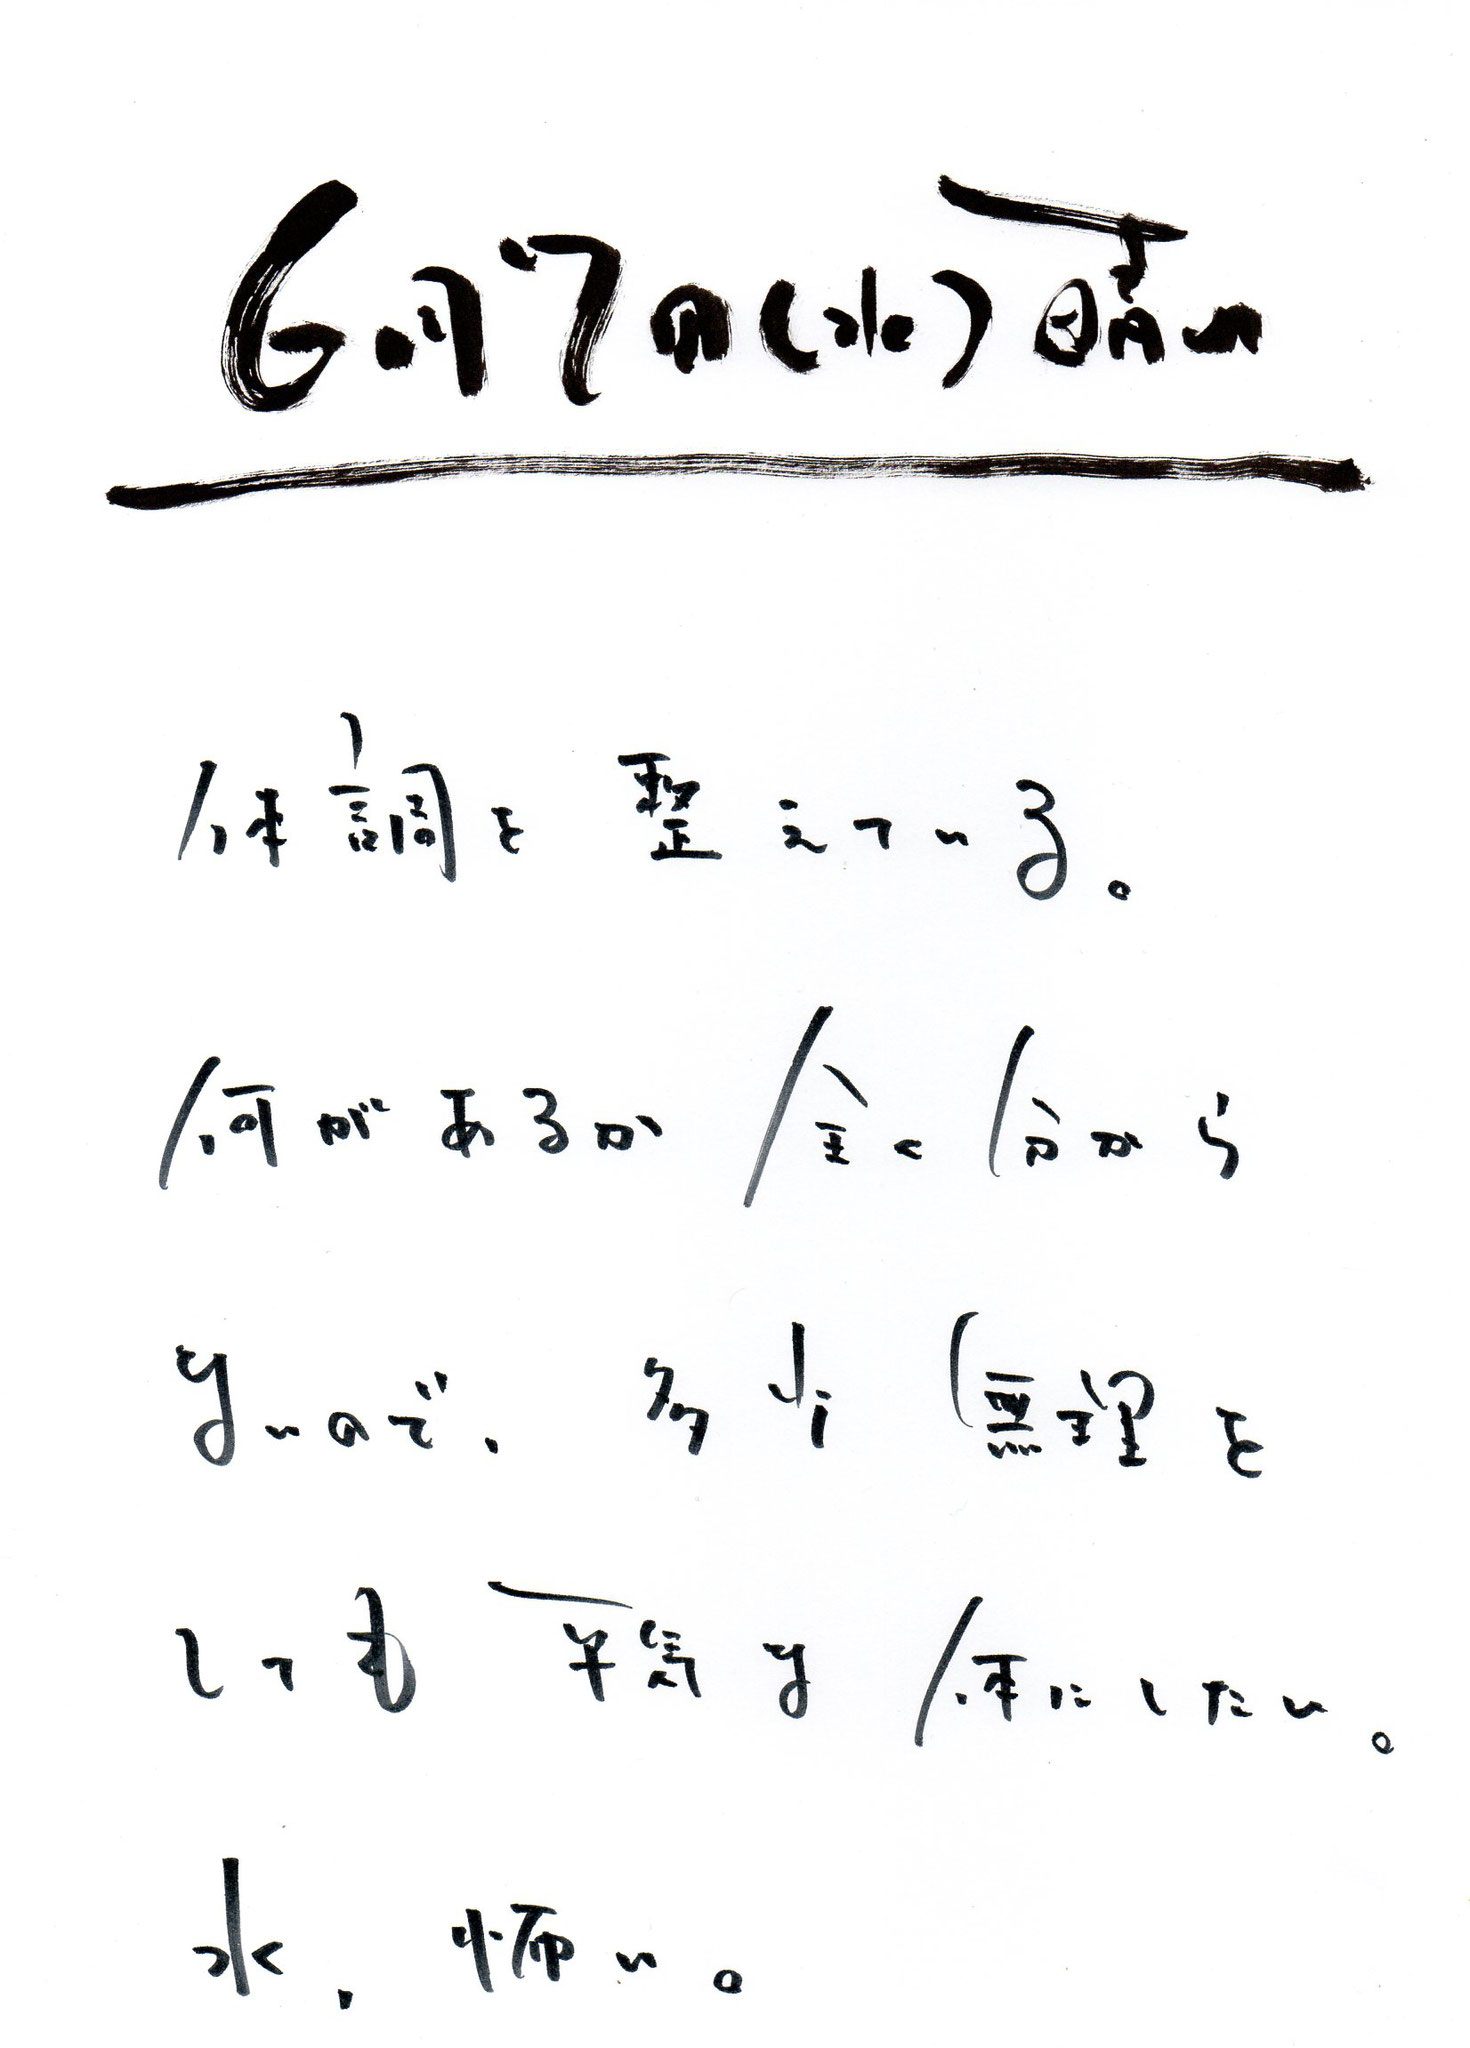 6月7日(水)晴れ
体調を整えている。
何があるか全く分から
ないので、多少無理を
しても平気な体にしたい。
水、怖い。